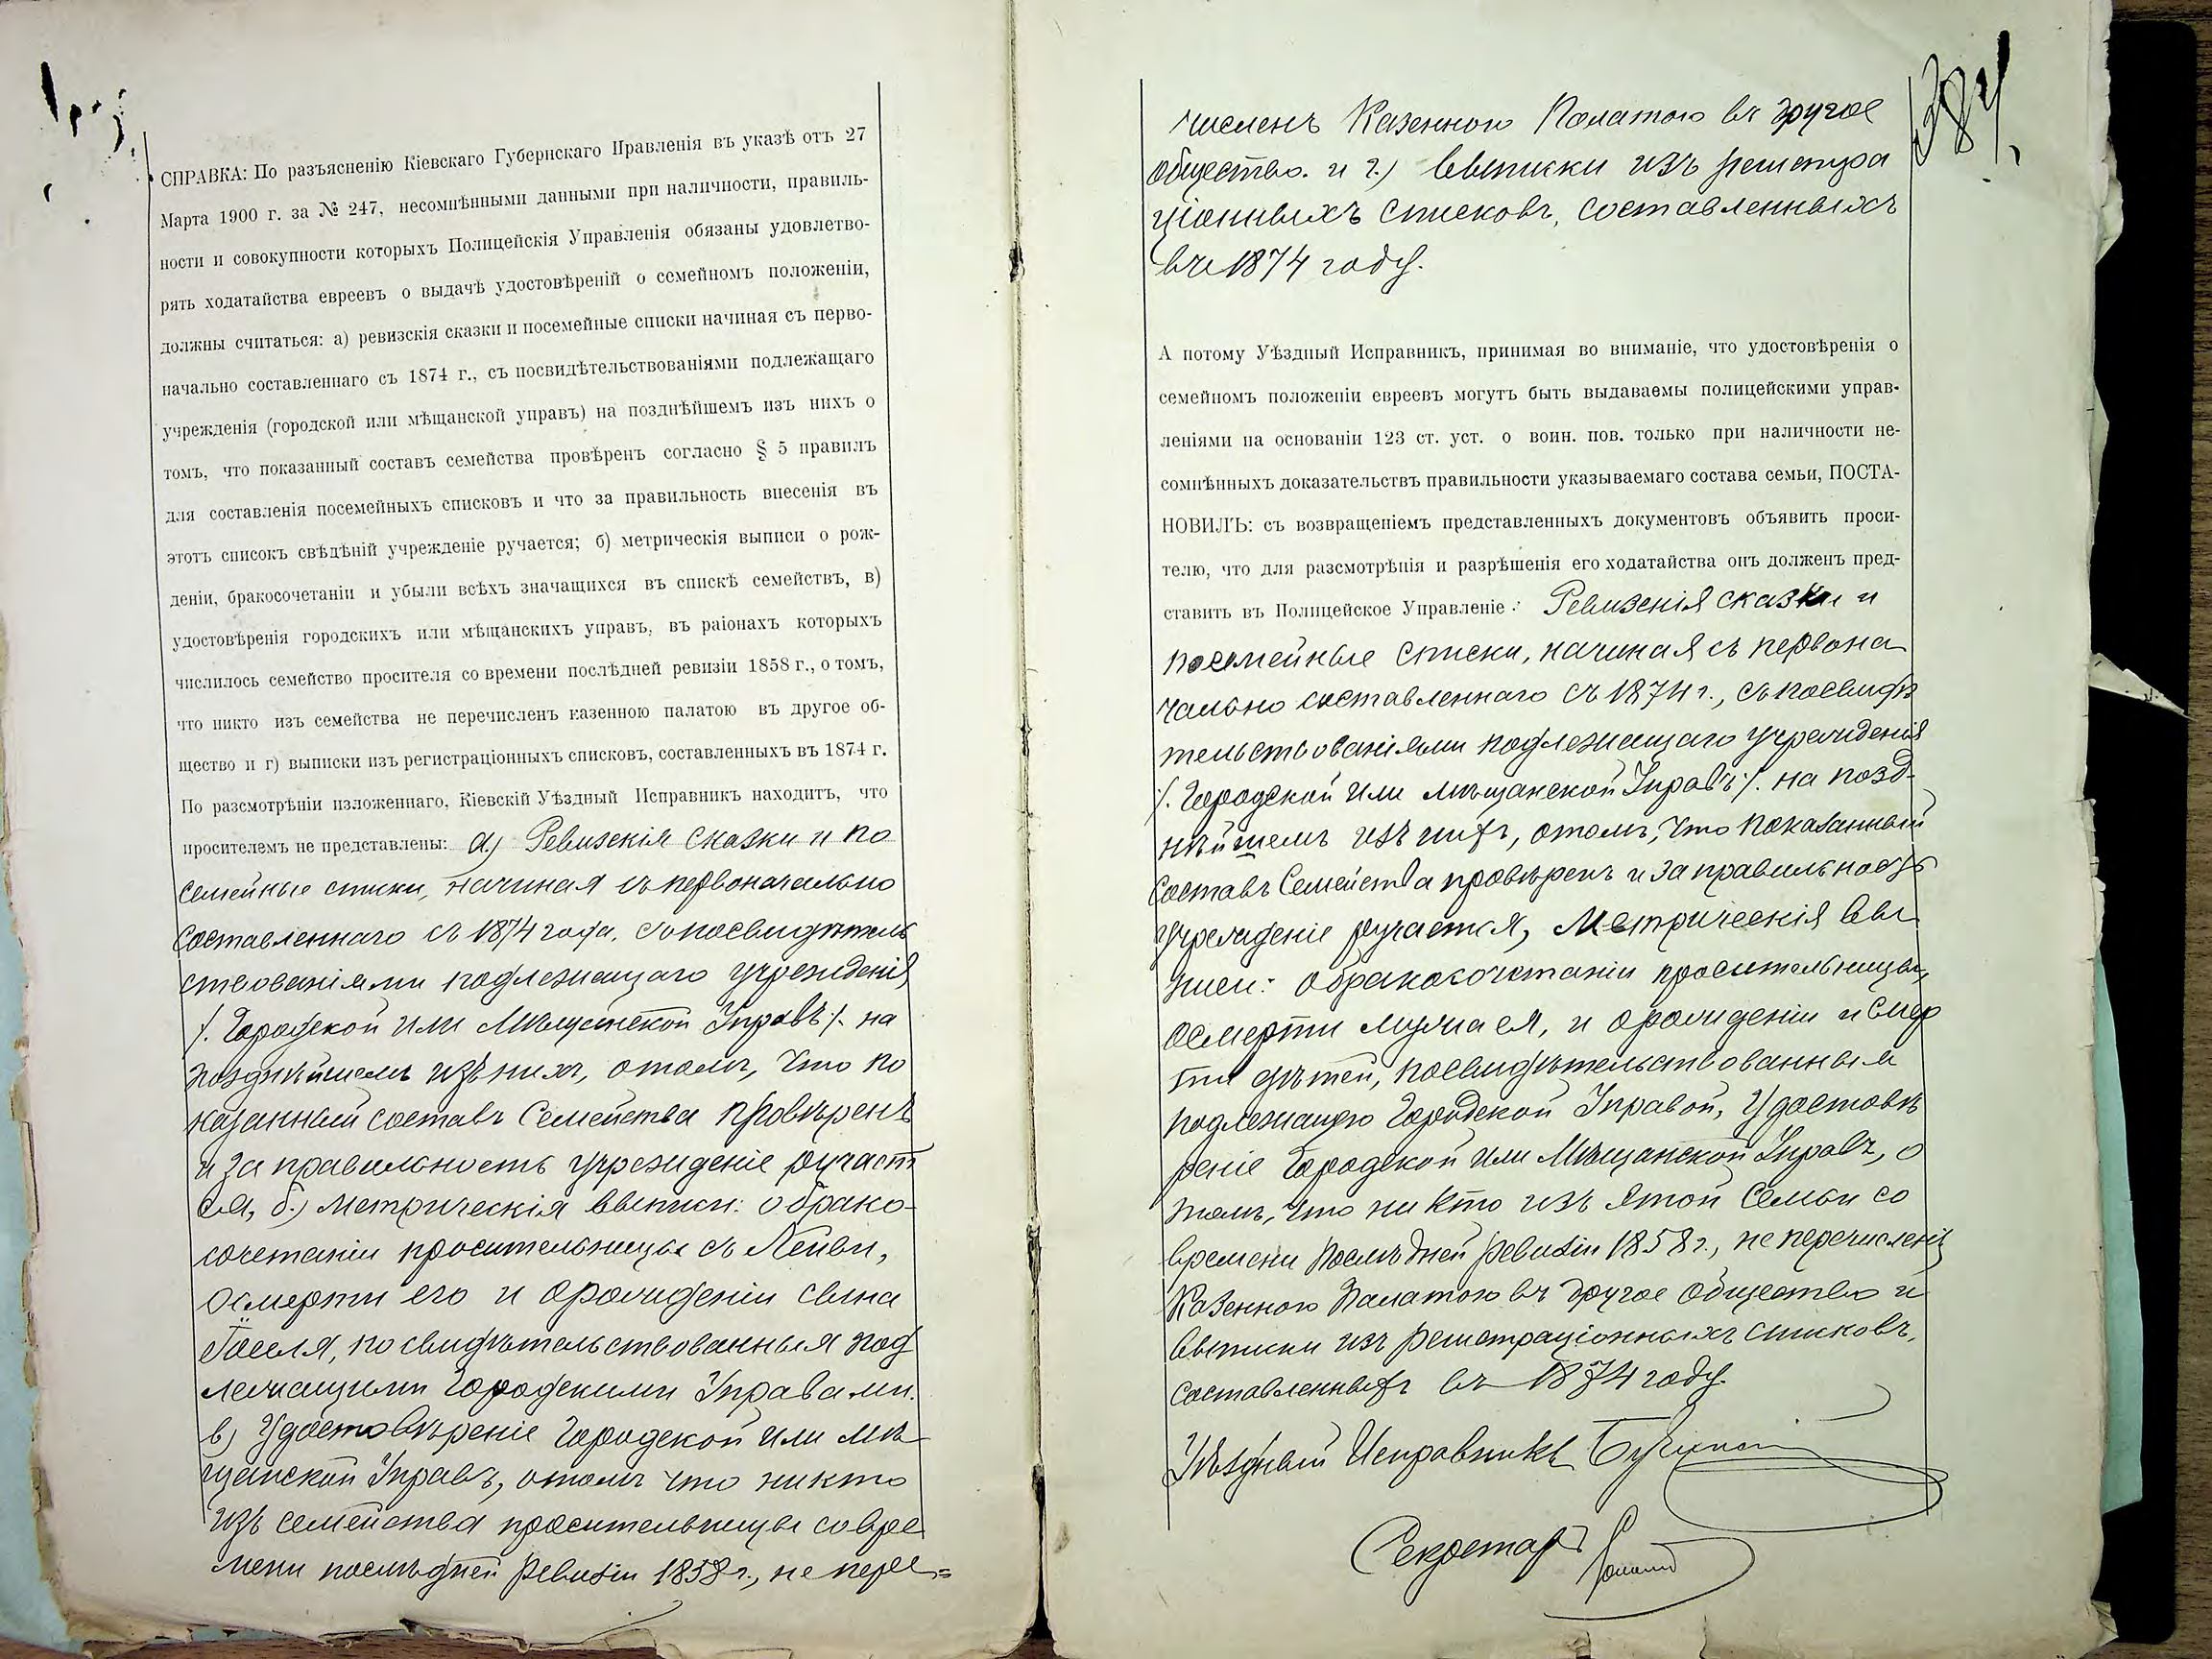 СПРАВКА: По разъясненію Кіевскаго Губернскаго Правленія въ указѣ отъ 27
Марта 1900 г. за № 247, несомнѣнными данными при наличности, правиль-
ности и совокупности которыхъ Полицейскія Управленія обязаны удовлетво-
рять ходатайства евреевъ о выдачѣ удостовѣреній о семейномъ положеніи,
должны считаться: а) ревизскія сказки и посемейные списки начиная съ перво-
начально составленнаго съ 1874 г., съ посвидѣтельствованіями подлежащаго
учрежденія (городской или мѣщанской управъ) на позднѣйшемъ изъ нихъ о
томъ, что показанный составъ семейства провѣренъ согласно § 5 правилъ
для составленія посемейныхъ списковъ и что за правильность внесенія въ
этотъ списокъ свѣдѣній учрежденіе ручается; б) метрическія выписи о рож-
деніи, бракосочетаніи и убыли всѣхъ значащихся въ спискѣ семействъ, в)
удостовѣренія городскихъ или мѣщанскихъ управъ, въ раіонахъ которыхъ
числилось семейство просителя со времени послѣдней ревизіи 1858 г., о томъ,
что никто изъ семейства не перечисленъ казенною палатою въ другое об-
щество и г) выписки изъ регистраціонныхъ списковъ, составленныхъ въ 1874 г.
По разсмотрѣніи изложеннаго, Кіевскій Уѣздный Исправникъ находитъ, что
просителемъ не представлены: а) Ревизскія сказки и по
семейные списки, начиная съ первоначально
составленнаго съ 1874 года, съ посвидѣтель
ствованіями подлежащаго учрежденія
/. Городской или Мѣщанской Управъ /. на
позднѣйшемъ изъ нихъ, о томъ, что по
казанный составъ Семейства провѣренъ
и за правильность учрежденіе ручает
ся, б.) метрическія выписи: о брако-
сочетаніи просительницы съ Лейви,
о смерти его и о рожденіи сына
Іоселя, посвидѣтельствованныя под
лежащими Городскими Управами.
в) Удостовѣреніе Городской или мѣ
щанской Управъ, о томъ что никто
изъ семейства просительницы со вре
мени послѣдней ревизіи 1858 г., не пере=
384
численъ Казенною Палатою въ другое
общество. и г.) Выписки изъ регистра
ціонныхъ списковъ, составленныхъ
въ 1874 году.
А потому Уѣздный Исправникъ, принимая во вниманіе, что удостовѣренія о
семейномъ положеніи евреевъ могутъ быть выдаваемы полицейскими управ-
леніями на основаніи 123 ст. уст. о воин. пов. только при наличности не-
сомнѣнныхъ доказательствъ правильности указываемаго состава семьи, ПОСТА-
НОВИЛЪ: съ возвращеніемъ представленныхъ документовъ объявить проси-
телю, что для разсмотрѣнія и разрѣшенія его ходатайства онъ долженъ пред-
ставить въ Полицейское Управленіе: Ревизскія сказки и
посемейные списки, начиная съ первона
чально составленнаго съ 1874 г., съ посвидѣ
тельствованіями подлежащаго учрежденія
/. Городской или мѣщанской Управъ /. на позд-
нѣйшемъ изъ нихъ, о томъ, что показанный
составъ Семейства провѣренъ и за правильность
учрежденіе ручается, Метрическія вы
писи: о бракосочетаніи просительницы,
о смерти мужа ея, и о рожденіи и смер
ти дѣтей, посвидѣтельствованныя
подлежащею Городской Управой, Удостовѣ
реніе Городской или Мѣщанской Управъ, о
томъ, что никто изъ этой Семьи со
времени послѣдней ревизіи 1858 г., не перечисленъ
Казенною Палатою въ другое Общество и
Выписки изъ регистраціонныхъ списковъ,
составленныхъ въ 1874 году.
Уѣздный Исправникъ
Секретарь